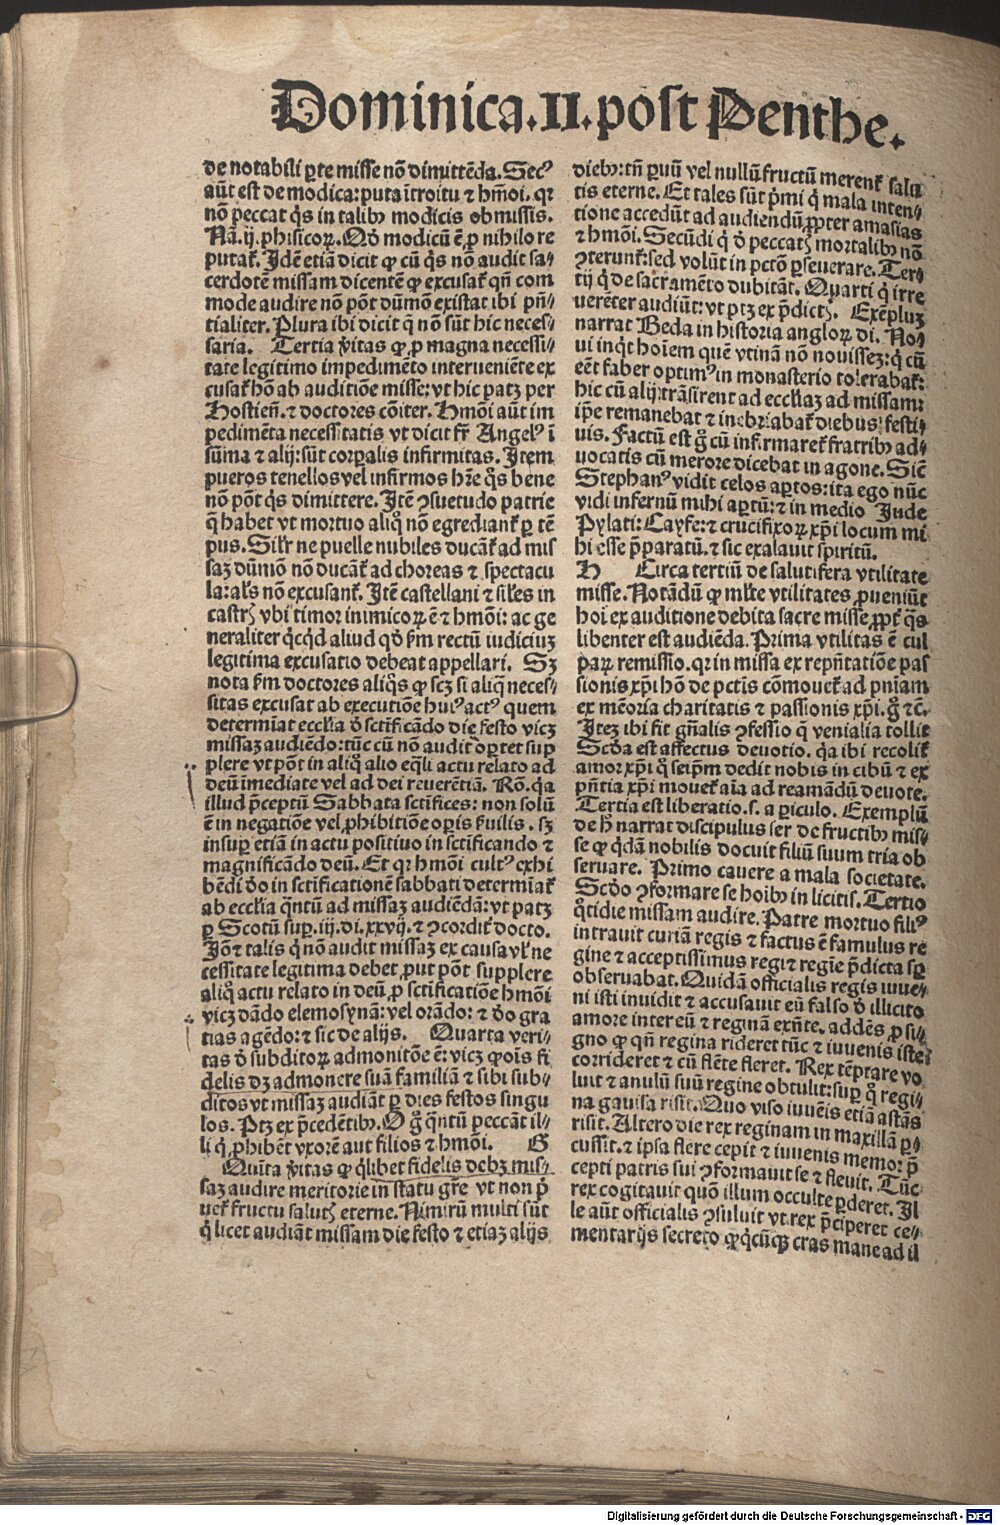 Dominica.II.post Penthe.
de notabili ꝑte misse nō dimittēda. Secꝰ
aūt est de modica: puta ītroitu ⁊ hm̄oi. qr
nō peccat q̇s in talibꝰ modicis obmissis.
Nā.ij.phisicoꝝ. Qđ modicū ē, ꝓ nihilo re
putat᷑. Idē etiā dicit ꝙ cū q̇s nō audit sa⸗
cerdotē missam dicentē ꝙ excusat᷑ qn̄ com
mode audire nō pōt dūmō existat ibi pn̄⸗
tialiter. Plura ibi dicit q̄ nō sūt hic neces⸗
saria. Tertia v̄itas ꝙ ꝓ magna necessi⸗
tate legitimo impedimēto interueniēte ex
cusat᷑ hō ab auditiōe misse: vt hic patꝫ per
Hostien̄. ⁊ doctores cōiter. Hmōi aūt im
pedimēta necessitatis vt dicit fr̄ Angelꝰ ī
sūma ⁊ alij: sūt corꝑalis infirmitas. Item
pueros tenellos vel infirmos hr̄e q̇s bene
nō pōt q̇s dimittere. Itē ꝯsuetudo patrie
q̄ habet vt mortuo aliq̊ nō egrediant᷑ ꝑ tē
pus. Silr̄ ne puelle nubiles ducāt᷑ ad mis
saꝫ dūmō nō ducāt᷑ ad choreas ⁊ spectacu
la: al̄s nō excusant᷑. Itē castellani ⁊ sil̄es in
castrꝭ vbi timor inimicoꝝ ē ⁊ hmōi: ac ge
neraliter q̇cq̇d aliud qđ ẜm rectū iudiciuꝫ
legitima excusatio debeat appellari. Sꝫ
nota ẜm doctores aliq̊s ꝙ scꝫ si aliq̄ neces⸗
sitas excusat ab executiōe huiꝰ actꝰ quem
determīat eccl̄ia đ sctīficādo die festo vicꝫ
missaꝫ audiēdo: tūc cū nō audit oportet suꝑ
plere vt pōt in aliq̊ alio eq̄li actu relato ad
deū īmediate vel ad dei reuerētiā. Rō. q̇a
illud p̄ceptū Sabbata sctīfices: non solū
ē in negatiōe vel ꝓhibitiōe oꝑis ẜuilis. sꝫ
insuꝑ etiā in actu positiuo in sctīficando ⁊
magnificādo deū. Et qr hmōi cultꝰ exhi
bēdi đo in sctīficationē sabbati determīat᷑
ab eccl̄ia q̄ntū ad missaꝫ audiēdā: vt patꝫ
ꝑ Scotū suꝑ.iij.di.xxvij. ⁊ ꝯcordit᷑ docto.
Iō ⁊ talis q̇ nō audit missaꝫ ex causa vl̄ ne
cessitate legitima debet ꝓut pōt supplere
aliq̊ actu relato in deū ꝓ sctīficatiōe hmōi
vicꝫ dādo elemosynā: vel orādo: ⁊ đo gra
tias agēdo: ⁊ sic de alijs. Quarta veri⸗
tas đ subditoꝝ admonitōe ē: vicꝫ ꝙ oīs fi
delis dꝫ admonere suā familiā ⁊ sibi sub⸗
ditos vt missaꝫ audiāt ꝑ dies festos singu
los. Ptꝫ ex p̄cedētibꝰ. O g̊ q̄ntū peccāt il⸗
li q̇ ꝓhibēt vxorē aut filios ⁊ hmōi. G
Quīta v̄itas ꝙ q̇libet fidelis debꝫ mis⸗
saꝫ audire meritorie in statu gr̄e vt non p̄
uet᷑ fructu salutꝭ eterne. Nimirū multi sūt
q̇ licet audiāt missam die festo ⁊ etiaꝫ alijs
diebꝰ: tn̄ ꝑuū vel nullū fructū merent᷑ salu
tis eterne. Et tales sūt p̄mi q̇ mala inten⸗
tione accedūt ad audiendū ꝓpter amasias
⁊ hmōi. Secūdi q̇ đ peccatꝭ mortalibꝰ nō
ꝯterunt᷑: sed volūt in pctō ꝑseuerare. Ter⸗
tij q̇ de sacramēto dubitāt. Quarti q̇ irre
uerēter audiūt: vt ptꝫ ex p̄dictꝭ. Exēpluꝫ
narrat Beda in historia angloꝝ di. No⸗
ui inq̇t hoīem quē vtinā nō nouisseꝫ: q̇ cū
eēt faber optimꝰ in monasterio tolerabat᷑:
hic cū alij trāsirent ad eccl̄iaꝫ ad missam:
ip̄e remanebat ⁊ inebriabat᷑ diebus festi⸗
uis. Factū est g̊ cū infirmaret᷑ fratribꝰ ad⸗
uocatis cū merore dicebat in agone. Sic̄
Stephanꝰ vidit celos aꝑtos: ita ego nūc
vidi infernū mihi aꝑtū: ⁊ in medio Jude
Pylati: Cayfe: ⁊ crucifixoꝝ xp̄i locum mi
hi esse p̄paratū. ⁊ sic exalauit spiritū.
H Circa tertiū de salutifera vtilitate
misse. Notādū ꝙ ml̄te vtilitates ꝓueniūt
hoī ex auditione debita sacre misse, ꝓpt᷑ q̄s
libenter est audiēda. Prima vtilitas ē cul
paꝝ remissio. qr in missa ex repn̄tatiōe pas
sionis xp̄i hō de pctīs cōmouet᷑ ad pn̄iam
ex mēoria charitatis ⁊ passionis xp̄i. g̊ ⁊c̄.
Iteꝫ ibi fit gn̄alis ꝯfessio q̄ venialia tollit
Scđa est affectus deuotio. q̇a ibi recolit᷑
amor xp̄i q̇ seip̄m dedit nobis in cibū ⁊ ex
pn̄tia xp̄i mouet᷑ aīa ad reamādū deuote.
Tertia est liberatio.s. a ꝑiculo. Exemplū
de h̄ narrat discipulus ser de fructibꝰ mis⸗
se ꝙ q̇dā nobilis docuit filiū suum tria ob
seruare. Primo cauere a mala societate.
Scđo ꝯformare se hoībꝰ in licitis. Tertio
q̊tidie missam audire. Patre mortuo filiꝰ
intrauit curiā regis ⁊ factus ē famulus re
gine ⁊ acceptissimus regi ⁊ regīe p̄dicta sꝑ
obseruabat. Quidā officialis regis iuue⸗
ni isti inuidit ⁊ accusauit eū falso đ illicito
amore inter eū ⁊ reginā exn̄te. addēs ꝓ si⸗
gno ꝙ qn̄ regina rideret tūc ⁊ iuuenis iste
corrideret ⁊ cū flēte fleret. Rex tēptare vo
luit ⁊ anulū suū regine obtulit: suꝑ q̊ regi⸗
na gauisa risit. Quo viso iuuēis etiā astās
risit. Altero die rex reginam in maxillā ꝑ⸗
cussit. ⁊ ipsa flere cepit ⁊ iuuenis memor p̄
cepti patris sui ꝯformauit se ⁊ fleuit. Tūc
rex cogitauit quō illum occulte ꝑderet. Il
le aūt officialis ꝯsuluit vt rex p̄ciperet ce⸗
mentarijs secreto ꝙ q̇cūqꝫ cras mane ad il
Digitalisierung gefördert durch die Deutsche Forschungsgemeinschaft - DFG